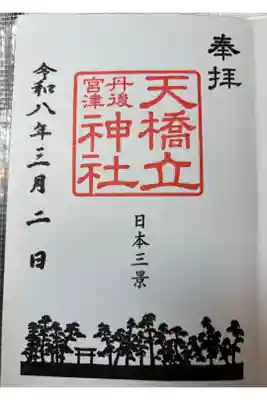 奉拝
天橋立
丹後
宮津
神社
日本三景
令和八年三月二日